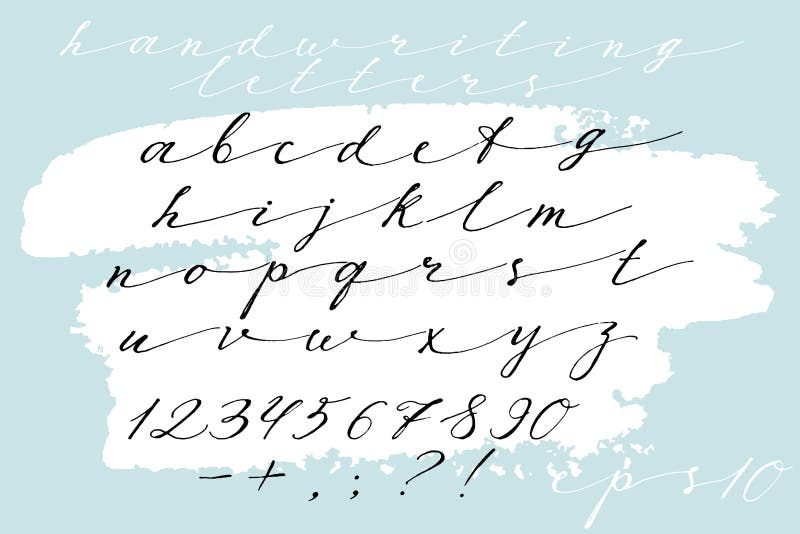 handwriting
letters
abcdefg
hijklm
nopqrst
uvwxyz
1234567890
-+,;?!
eps10